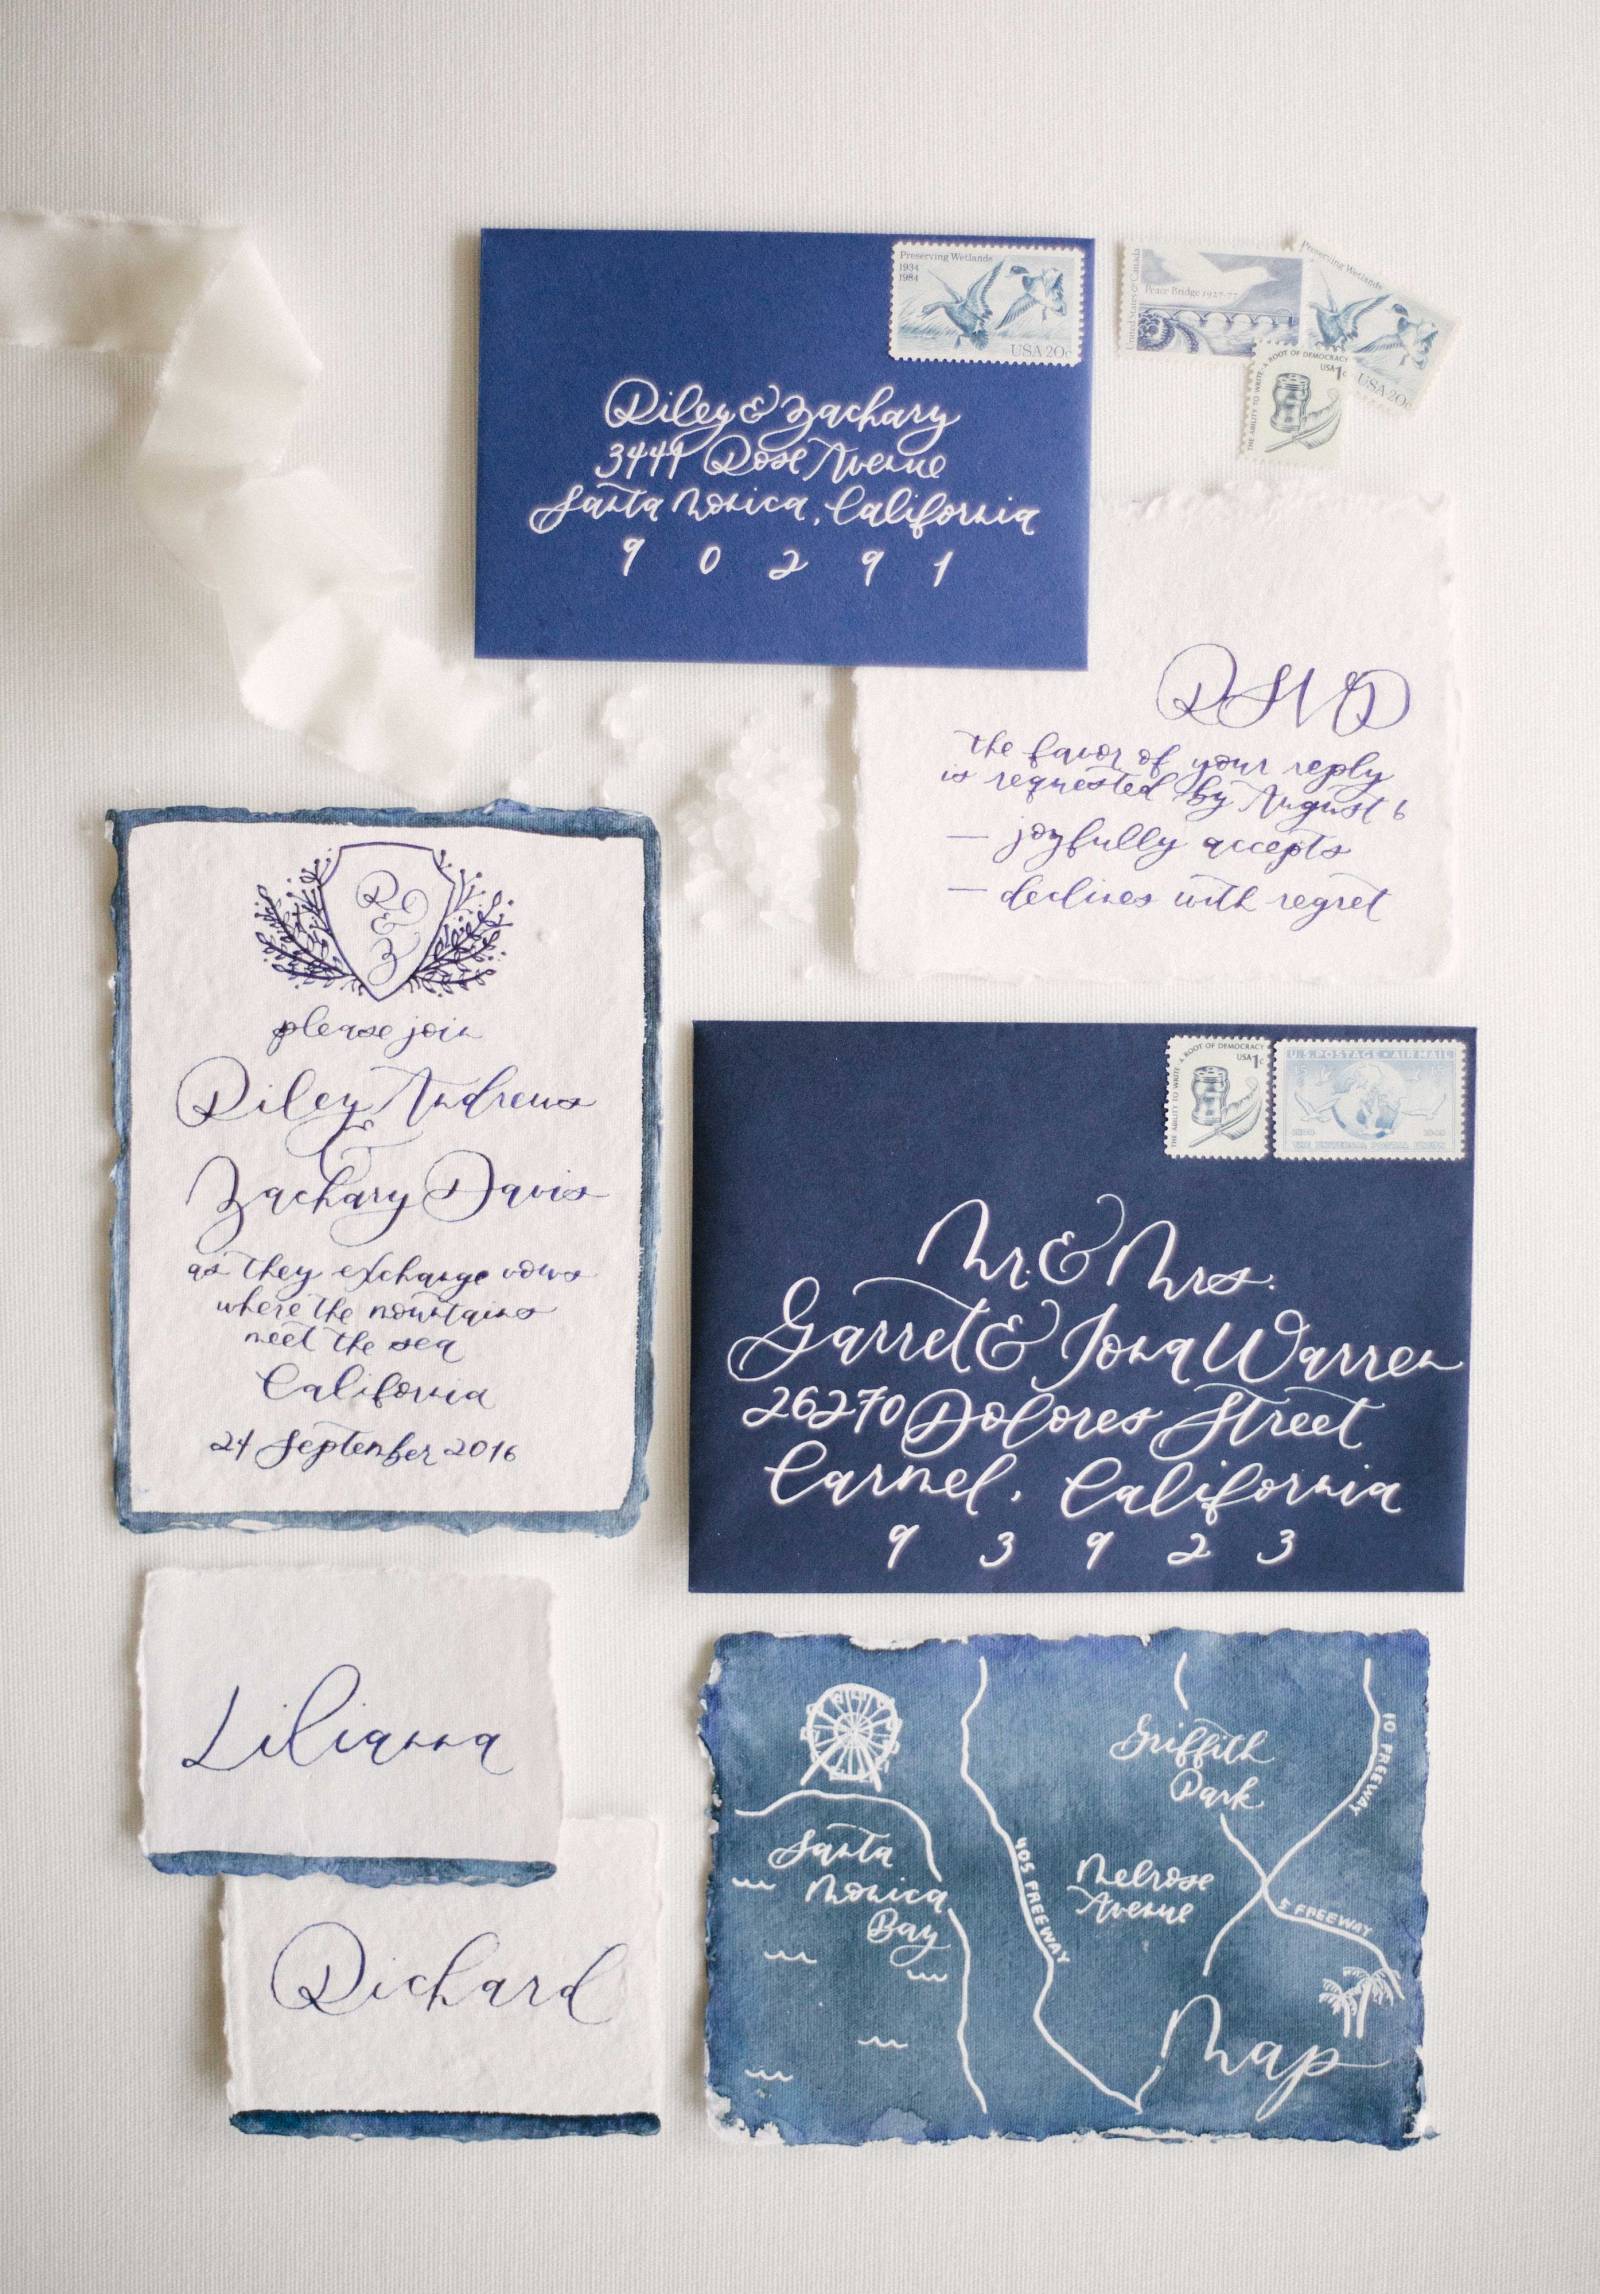 Preserving Wetlands
1934
1984
USA 20c
Riley & Zachary
3441 Rose Avenue
Santa Monica, California
9 0 2 9 1
United States & Canada
Peace Bridge 1927-77
Preserving Wetlands
USA 20c
A ROOT OF DEMOCRACY
USA 1c
THE ABILITY TO WRITE
RSVP
the favor of your reply
is requested by August 6
— joyfully accepts
— declines with regret
R
&
Z
please join
Riley Andrews
&
Zachary Davis
as they exchange vows
where the mountains
meet the sea
California
24 September 2016
THE ABILITY TO WRITE · A ROOT OF DEMOCRACY
USA 1c
U.S. POSTAGE · AIR MAIL
THE UNIVERSAL POSTAL UNION
Mr. & Mrs.
Garret & Iona Warren
26270 Dolores Street
Carmel, California
9 3 9 2 3
Lilianna
Richard
Santa
Monica
Bay
405 FREEWAY
Griffith
Park
Melrose
Avenue
10 FREEWAY
5 FREEWAY
Map